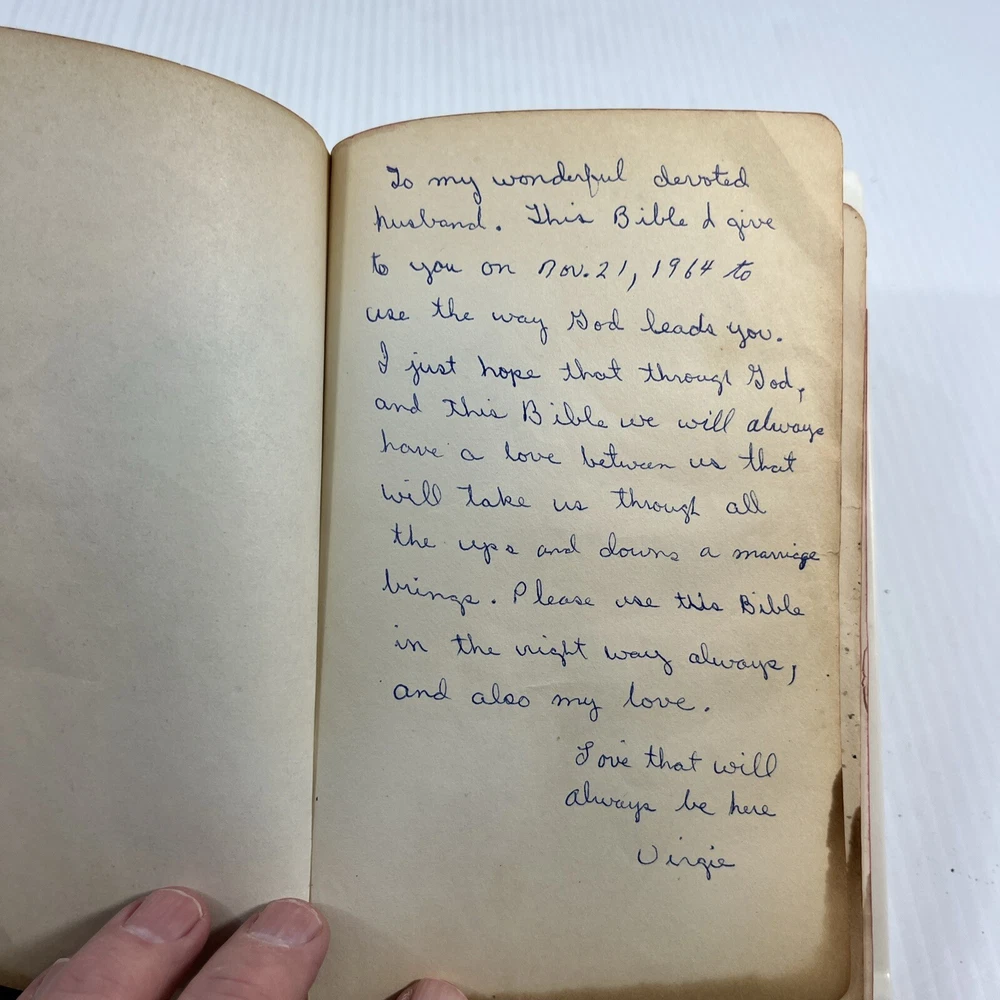 To my wonderful devoted
husband. This Bible I give
to you on Nov. 21, 1964 to
use the way God leads you.
I just hope that through God,
and this Bible we will always
have a love between us that
will take us through all
the ups and downs a marriage
brings. Please use this Bible
in the right way always,
and also my love.
Love that will
always be here
Virgie